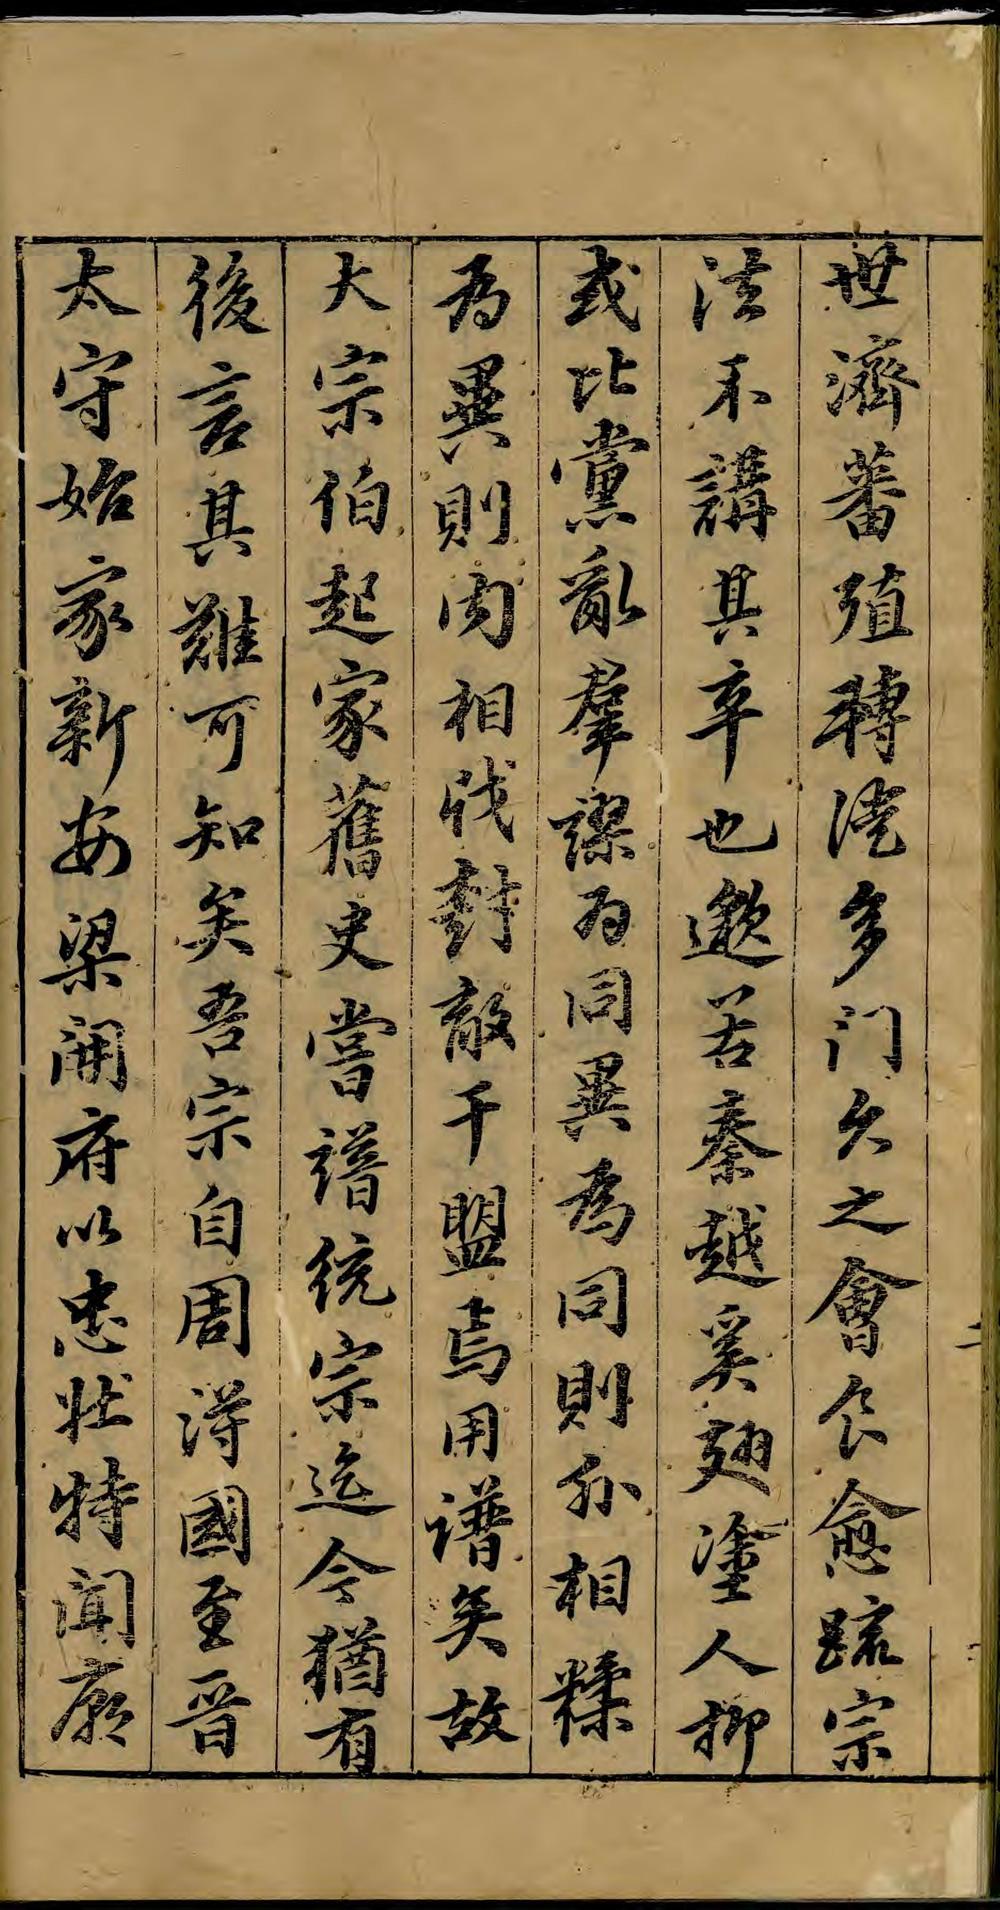 世濟蕃殖轉徙多門久之會食愈疏宗
法不講其卒也邈若秦越奚翅塗人抑
或比黨亂羣謬為同異為同則外相糅
為異則內相戕封敵千盟焉用譜矣故
大宗伯起家舊史嘗譜統宗迄今猶有
後言其難可知矣吾宗自周得國至晉
太守始家新安梁開府以忠壯特聞廟
二